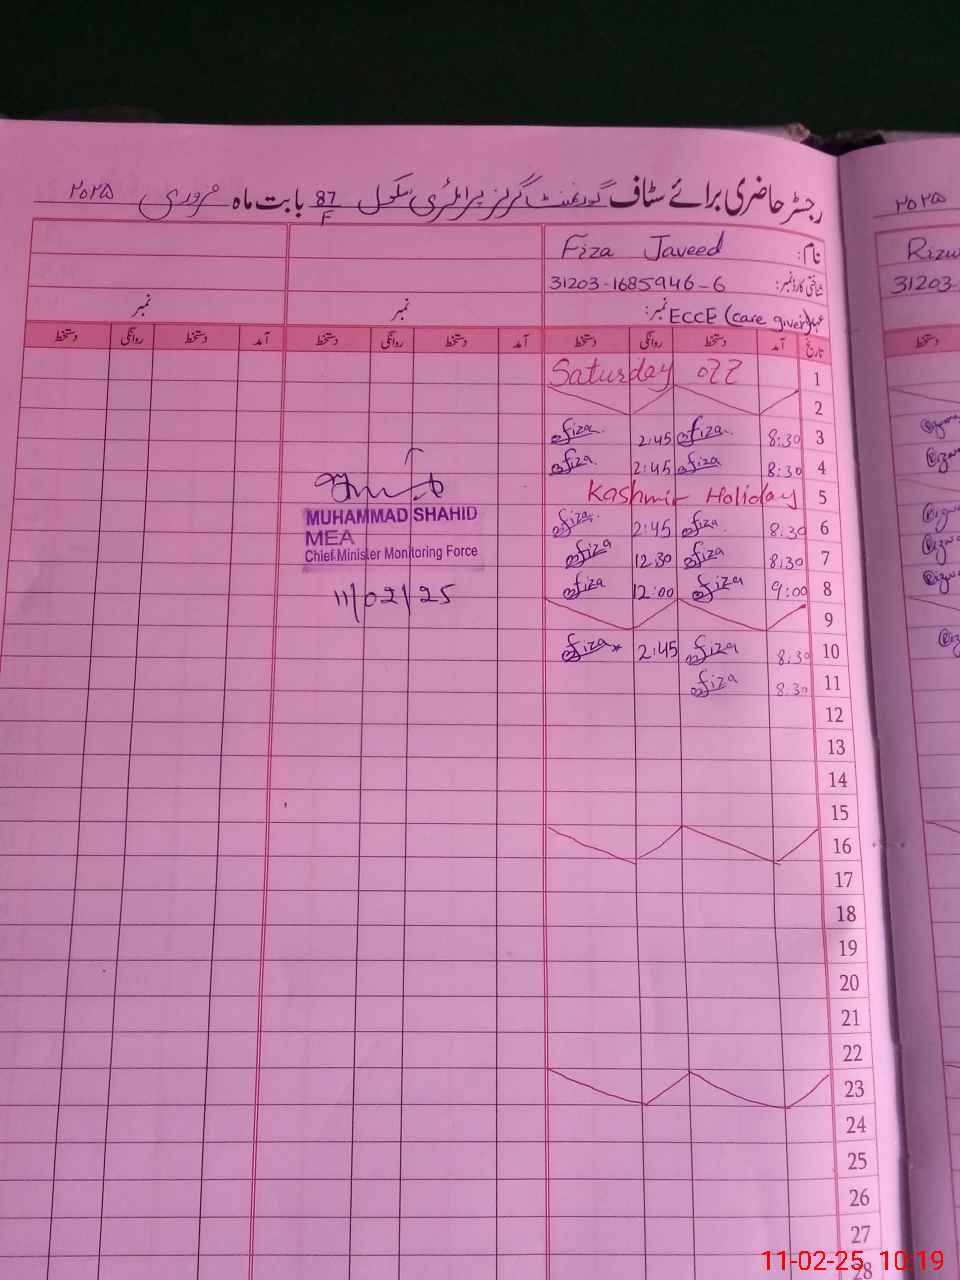 رجسٹر حاضری برائے سٹاف گورنمنٹ گرلز پرائمری سکول 87/F بابت ماہ فروری ۲۰۲۵
۲۰۲۵
نام: Fiza Javeed
شناختی کارڈ نمبر: 31203-1685946-6
نمبر: ECCE (care giver)
نمبر
نمبر
Rizw
31203-
تاریخ آمد دستخط روانگی دستخط آمد دستخط روانگی دستخط آمد دستخط روانگی دستخط
دستخط
1 Saturday off
2
3 8:30 Fiza 2:45 Fiza
4 8:30 Fiza 2:45 Fiza
5 Kashmir Holiday
6 8:30 Fiza 2:45 Fiza
7 8:30 Fiza 12:30 Fiza
8 9:00 Fiza 12:00 Fiza
9
10 8:30 Fiza 2:45 Fiza
11 8:30 Fiza
12
13
14
15
16
17
18
19
20
21
22
23
24
25
26
27
28
MUHAMMAD SHAHID
MEA
Chief Minister Monitoring Force
11/02/25
11-02-25 10:19